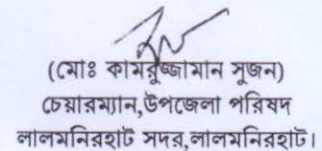 (মোঃ কামরুজ্জামান সুজন)
চেয়ারম্যান,উপজেলা পরিষদ
লালমনিরহাট সদর,লালমনিরহাট।